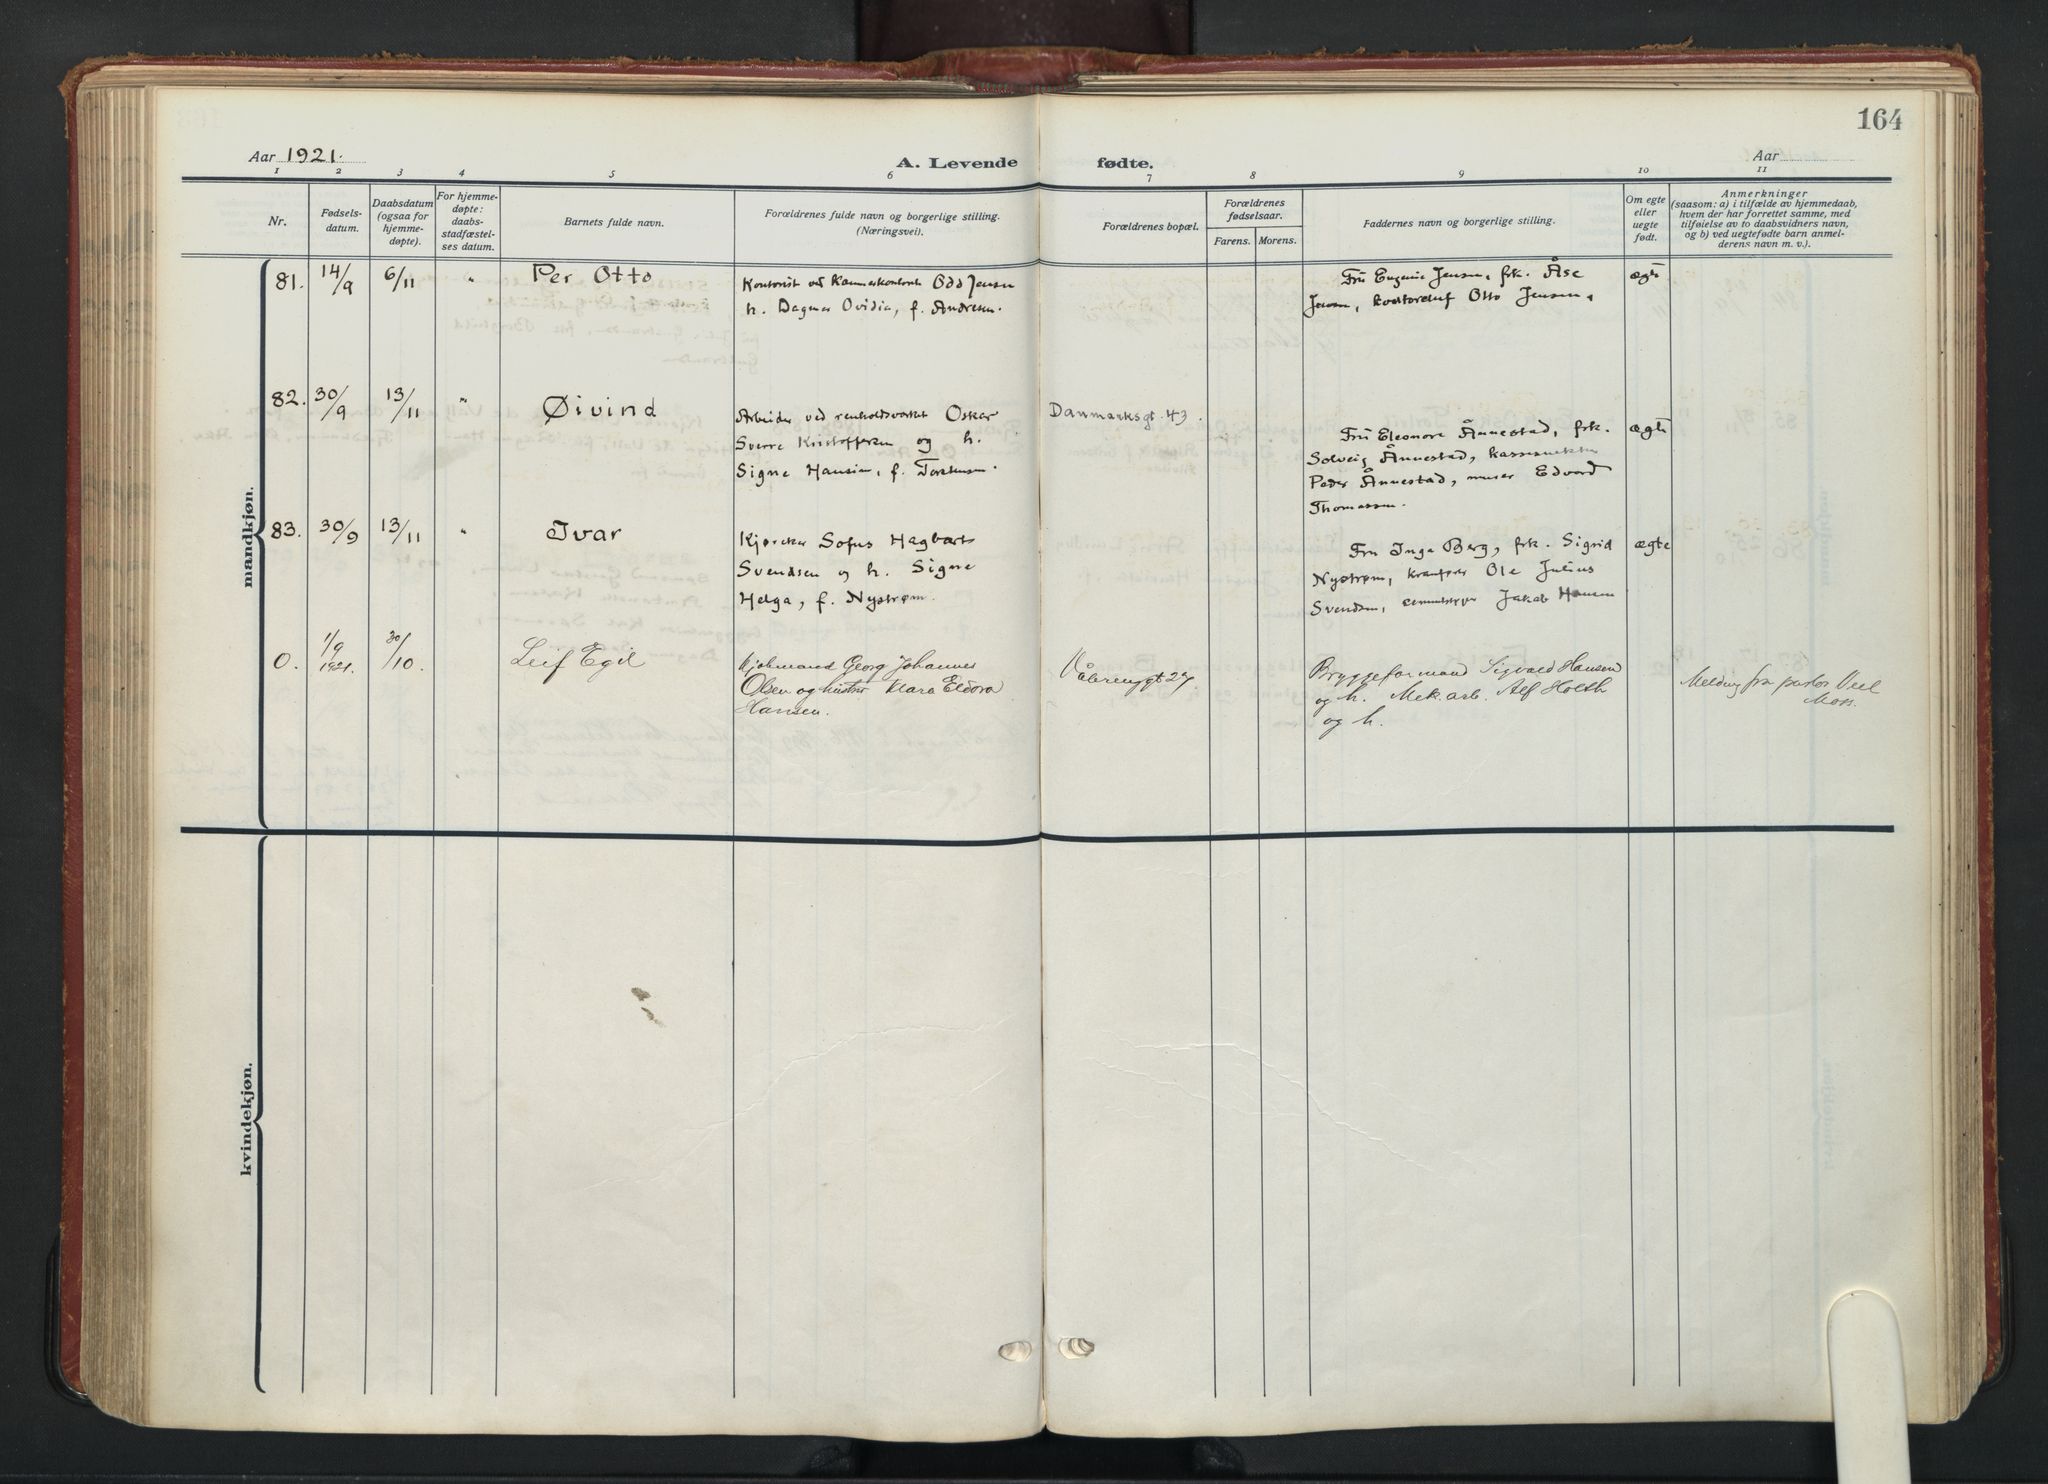 164
Aar 1921.
A. Levende fødte.
Aar
1 2 3 4 5 6 7 8 9 10 11
Nr.
Fødsels-
datum.
Daabsdatum
(ogsaa for
hjemme-
døpte).
For hjemme-
døpte:
daabs-
stadfæstel-
ses datum.
Barnets fulde navn.
Forældrenes fulde navn og borgerlige stilling.
(Næringsvei).
Forældrenes bopæl.
Forældrenes
fødselsaar.
Farens. Morens.
Faddernes navn og borgerlige stilling.
Om egte
eller
uegte
født.
Anmerkninger
(saasom: a) i tilfælde av hjemmedaab,
hvem der har forrettet samme, med
tilføielse av to daabsvidners navn,
og b) ved uegtefødte barn anmel-
derens navn m. v.).
mandkjøn.
81. 14/9 6/11 " Per Otto
Kontorist ved Odd Jensen
h. Dagmar Ovidia, f. Andresen.
Fru Eugenie Jensen, frk. Åse
Jensen, Otto Jensen,
ægte
82. 30/9 13/11 " Øivind
Arbeider ved renholdsverket Oskar
Sverre Kristoffersen og h.
Signe Hansine, f. Torstensen.
Danmarksgt. 43.
Fru Eleonore Ånnestad, frk.
Solveig Ånnestad,
Peder Ånnestad, murer Edvard
Thomassen.
ægte
83. 30/9 13/11 " Ivar
Kjørekar Sofus Hagbart
Svendsen og h. Signe
Helga, f. Nystrøm.
Fru Inga Berg, frk. Sigrid
Nystrøm, kranfører Ole Julius
Svendsen, Jakob Hansen
ægte
0. 1/9 1921. 30/10. Leif Egil
Kjølmand Georg Johannes
Olsen og hustru Klara Eldora
Hansen.
Vålerenggt 27
Bryggeformand Sigvald Hansen
og h. Mek. arb. Alf Holth
og h.
Melding fra pastor Veel
Moss.
kvindekjøn.